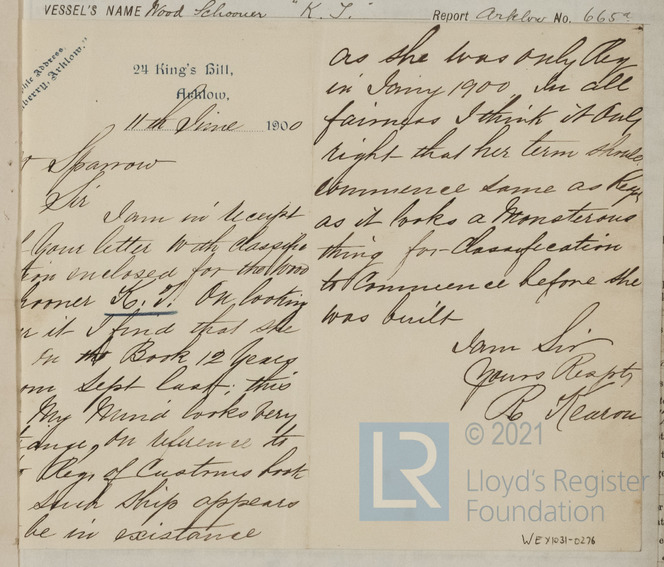 VESSEL'S NAME Wood Schooner "K. T." Report Arklow No. 665a
ble Address,
berry, Arklow."
24 King's Hill,
Arklow,
11th June 1900
Sparrow
Sir
I am in receipt
Your letter with classifica
tion enclosed for the Wood
hooner K. T. On looking
r it I find that she
on Book 12 Years
om Sept last; this
My Mind looks very
ange, on reference to
Regr of Customs book
such ship appears
be in existance
as she was only Reg
in Jany 1900 in all
fairness I think it Only
right that her term should
commence same as Regr
as it looks a Monsterous
thing for Classification
to Commence before she
was built
I am Sir
Yours Respty
R Kearon
© 2021
LR
Lloyd's Register
Foundation
WEX1031-0276